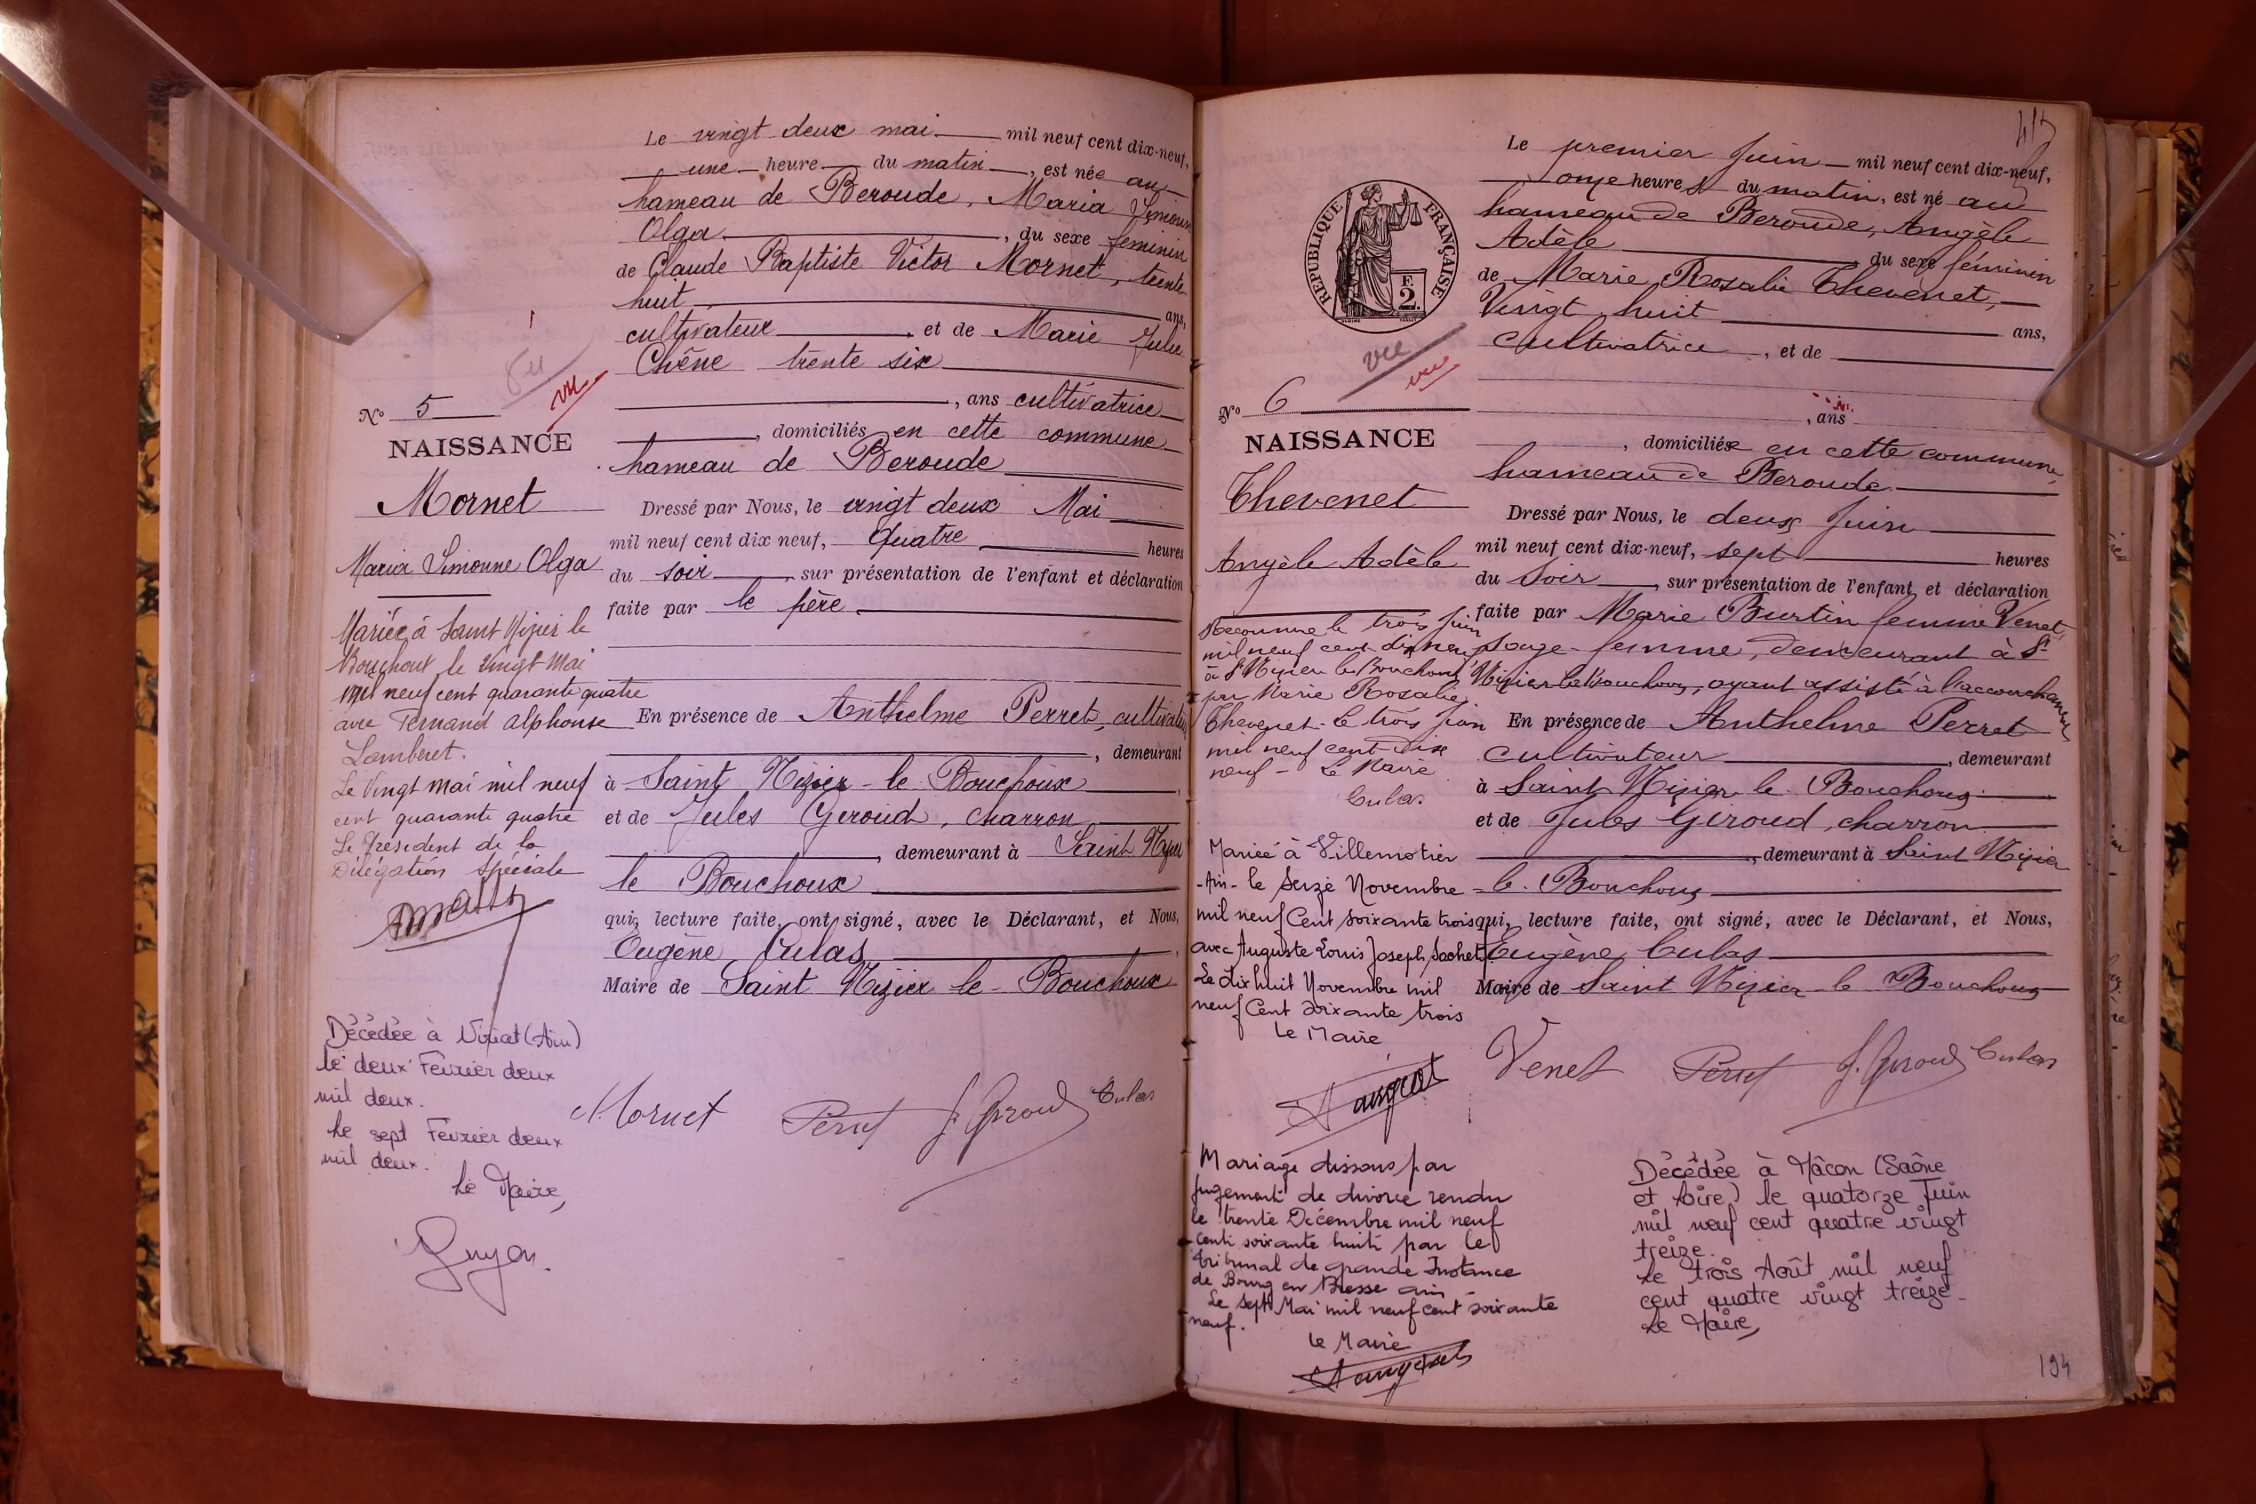 Le vingt deux mai mil neuf cent dix-neuf,
une heure du matin, est née au
hameau de Beroude, Maria Simonne
Olga, du sexe féminin
de Claude Baptiste Victor Mornet, trente
huit ans,
cultivateur, et de Marie Julie
Chêne trente six
, ans cultivatrice
, domiciliés en cette commune
hameau de Beroude
Dressé par Nous, le vingt deux Mai
mil neuf cent dix neuf, quatre heures
du soir, sur présentation de l'enfant et déclaration
faite par le père
En présence de Anthelme Perret, cultivateur
, demeurant
à Saint Nizier-le-Bouchoux,
et de Jules Giroud, charron
, demeurant à Saint Nizier
le Bouchoux
qui, lecture faite, ont signé, avec le Déclarant, et Nous,
Eugène Culas,
Maire de Saint Nizier le-Bouchoux
Mornet Perret J. Giroud Culas
vu
N° 5
NAISSANCE
Mornet
Maria Simonne Olga
Mariée à Saint Nizier le
Bouchoux le vingt Mai
mil neuf cent quarante quatre
avec Fernand Alphonse
Lamberet.
Le Vingt mai mil neuf
cent quarante quatre
Le Président de la
Délégation Spéciale
Décédée à Viriat (Ain)
le deux Février deux
mil deux.
Le sept Février deux
mil deux.
Le Maire,
Guyon
415
Le premier Juin mil neuf cent dix-neuf,
onze heures du matin, est né au
hameau de Beroude, Angèle
Adèle du sexe féminin
de Marie Rosalie Thevenet,
Vingt huit ans,
cultivatrice, et de
, ans
, domiciliée en cette commune,
hameau de Beroude
Dressé par Nous, le deux Juin
mil neuf cent dix-neuf, sept heures
du Soir, sur présentation de l'enfant et déclaration
faite par Marie Burtin femme Venet,
sage-femme, demeurant à St
Nizier le Bouchoux, ayant assisté à l'accouchement
En présence de Anthelme Perret
cultivateur, demeurant
à Saint Nizier le Bouchoux
et de Jules Giroud, charron
, demeurant à Saint Nizier
le Bouchoux
qui, lecture faite, ont signé, avec le Déclarant, et Nous,
Eugène Culas
Maire de Saint Nizier-le Bouchoux
Venet Perret J. Giroud Culas
RÉPUBLIQUE FRANÇAISE
E
2.
vue
vue
N° 6
NAISSANCE
Thevenet
Angèle Adèle
Reconnue le trois Juin
mil neuf cent dix neuf
à St Nizier le Bouchoux
par Marie Rosalie
Thevenet. Le trois Juin
mil neuf cent dix
neuf - Le Maire
Culas
Mariée à Villemotier
-Ain- le Seize Novembre
mil neuf Cent soixante trois
avec Auguste Louis Joseph Sochet
Le dix huit Novembre mil
neuf Cent soixante trois
Le Maire
Mariage dissous par
jugement de divorce rendu
le trente Décembre mil neuf
cent soixante huit par le
tribunal de grande Instance
de Bourg en Bresse ain
Le sept Mai mil neuf cent soixante
neuf.
Le Maire
Décédée à Mâcon (Saône
et Loire) le quatorze Juin
mil neuf cent quatre vingt
treize.
Le trois Août mil neuf
cent quatre vingt treize
Le Maire,
194